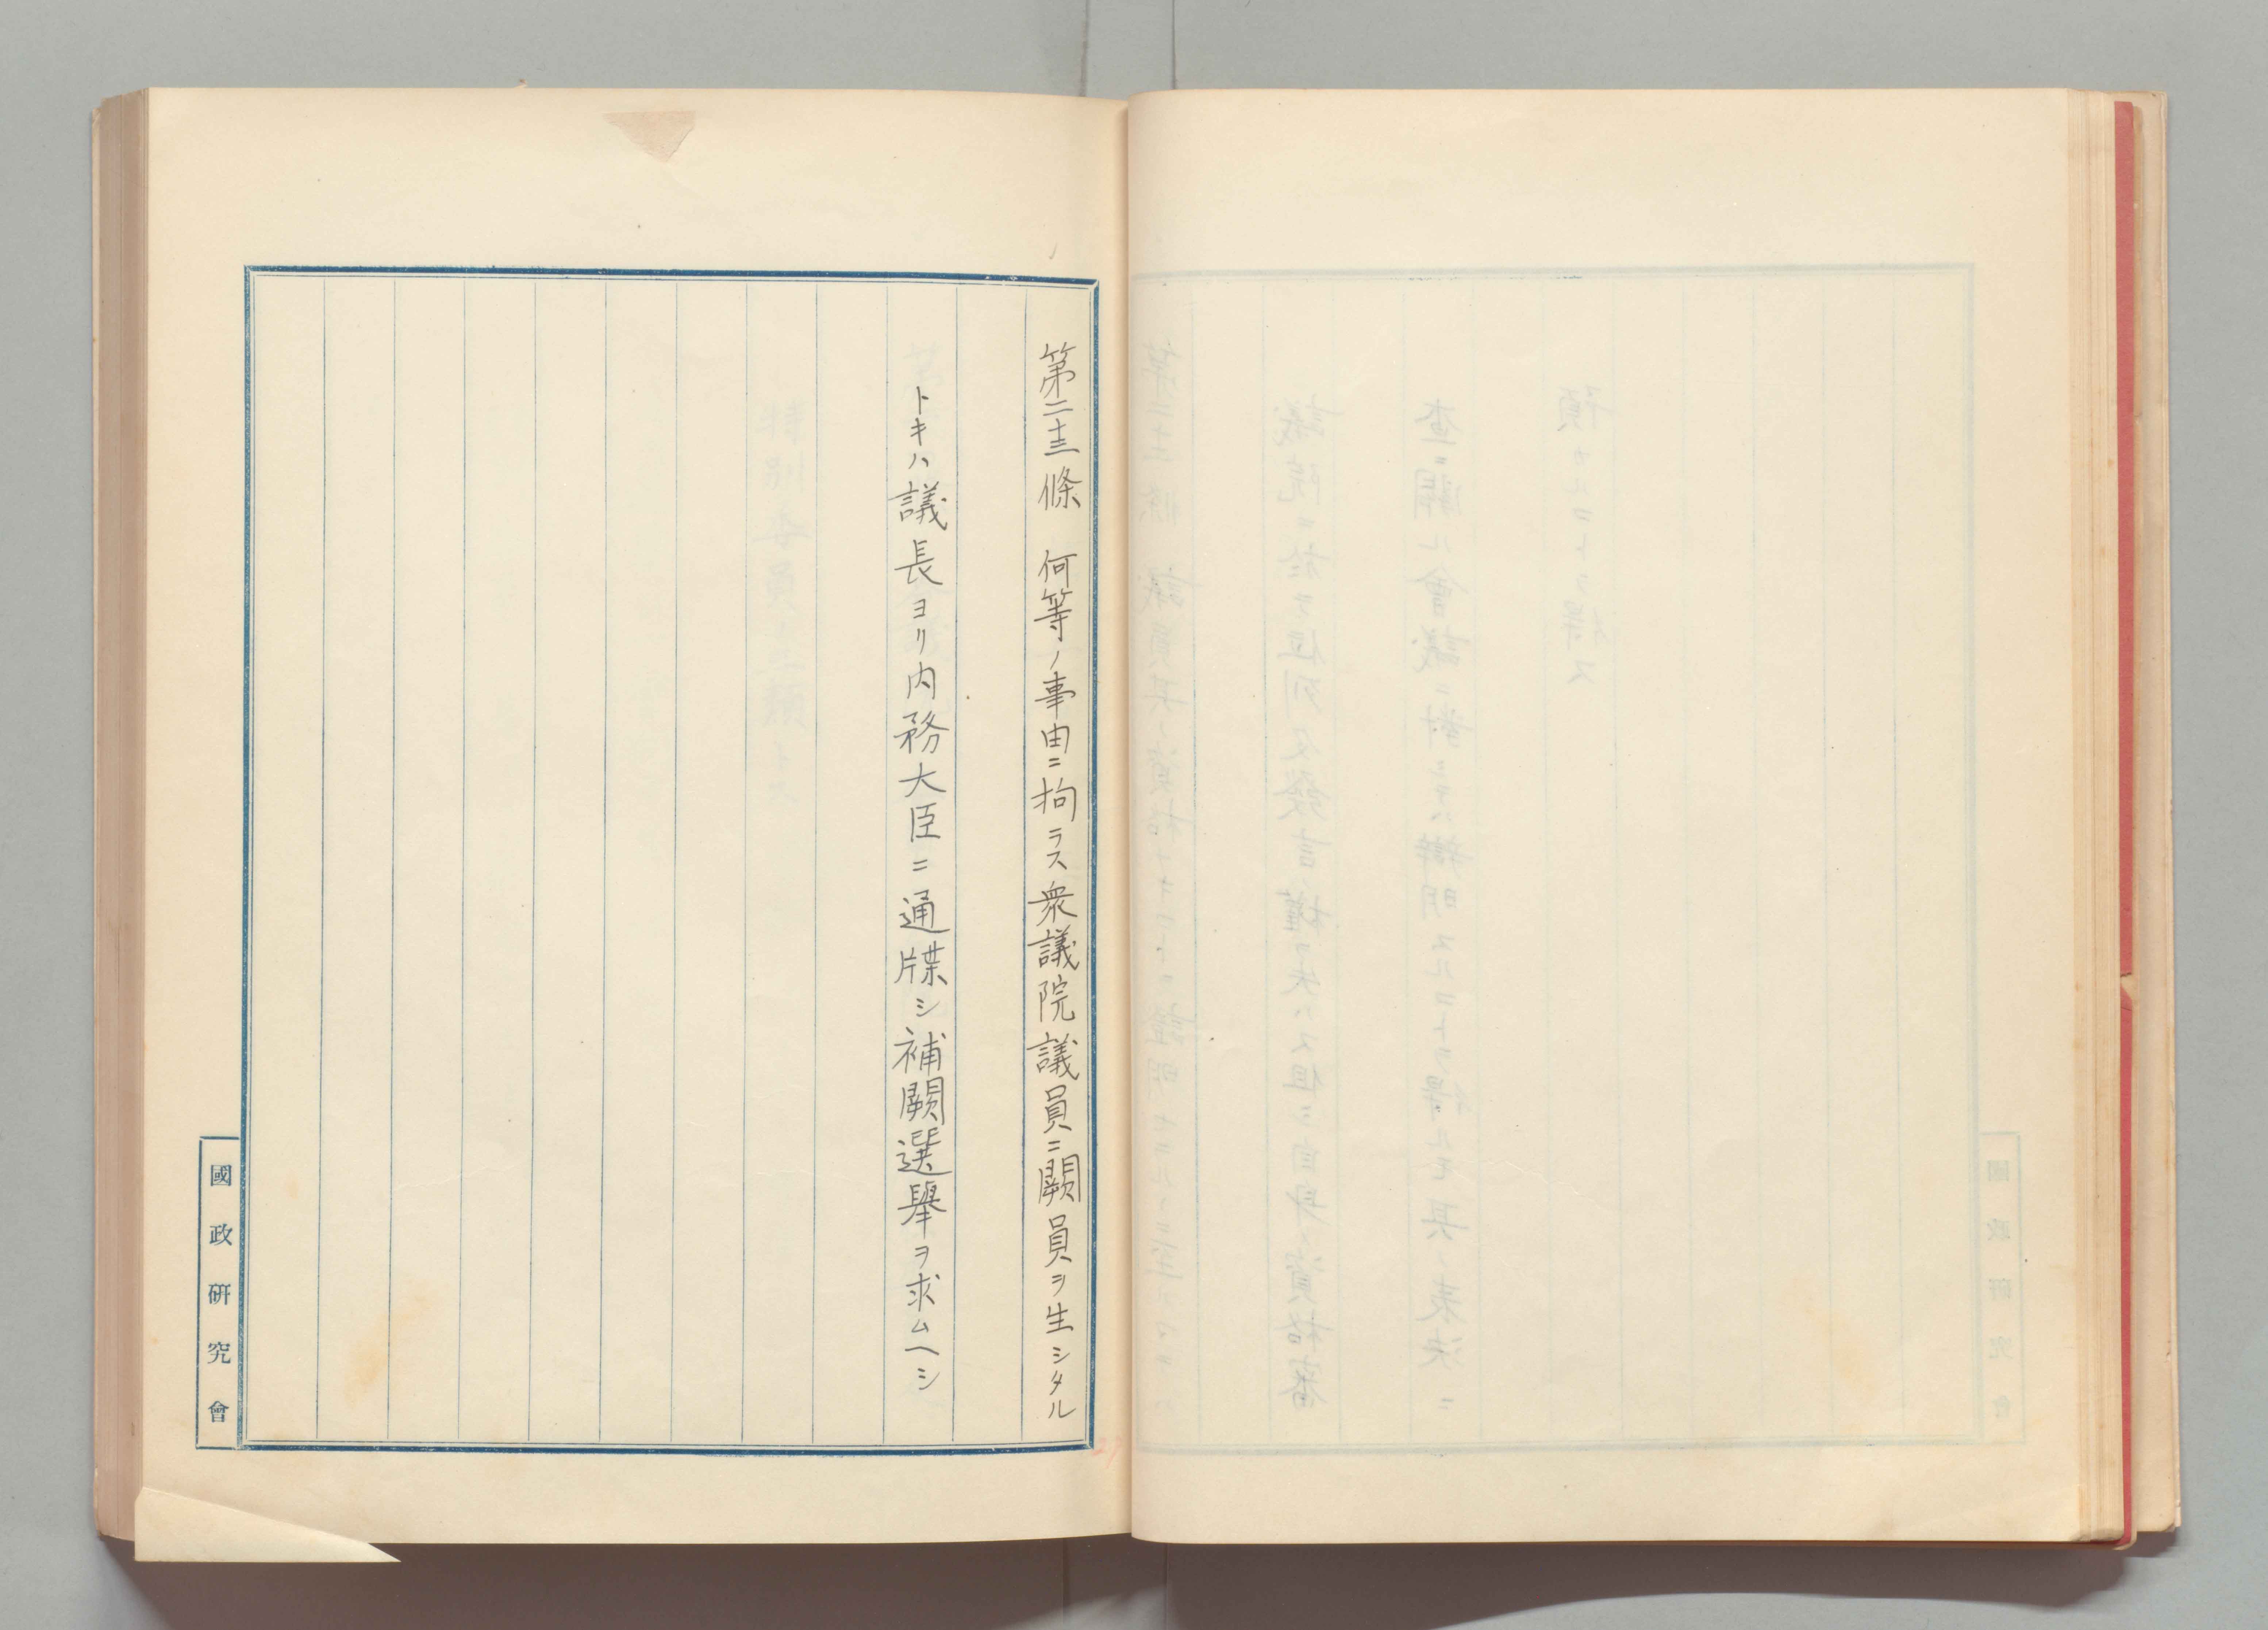 第二十三條　何等ノ事由ニ拘ラス衆議院議員ニ闕員ヲ生シタル
トキハ議長ヨリ内務大臣ニ通牒シ補闕選擧ヲ求ムヘシ
國政研究會